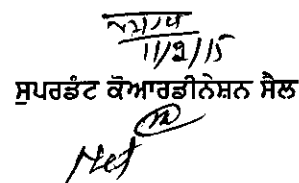 11/2/15
ਸੁਪਰਡੰਟ ਕੋਆਰਡੀਨੇਸ਼ਨ ਸੈਲ
Net